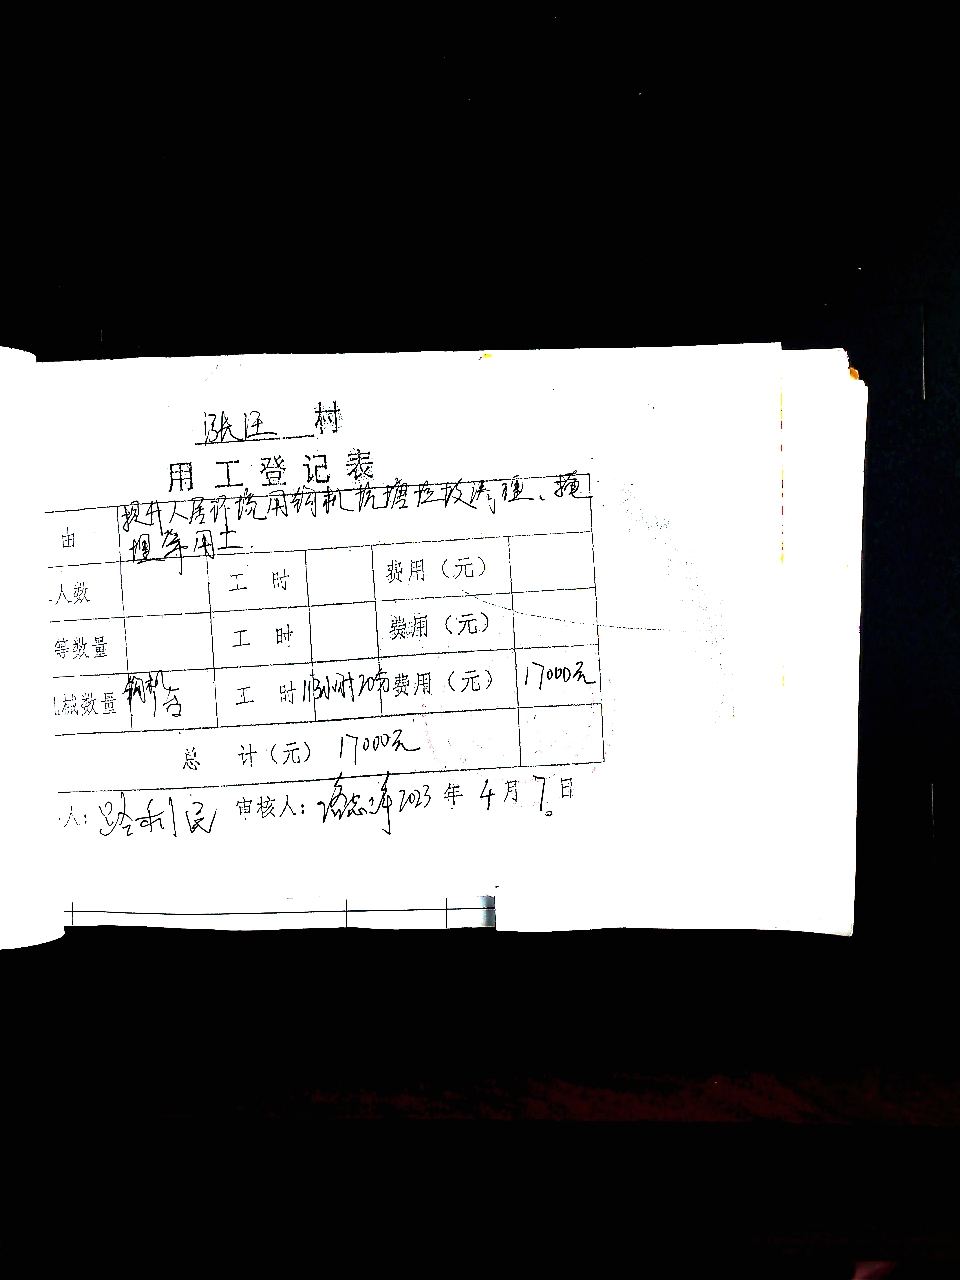 张汪 村
用工登记表
由 提升人居环境用钩机挖塘垃圾清理、掩
埋等用土.
人数 工 时 费用（元）
等数量 工 时 费用（元）
械数量 钩机 台 工 时 113小时20分 费用（元） 17000元
总 计（元） 17000元
人: 路利民 审核人: 2023 年 4 月 7 日